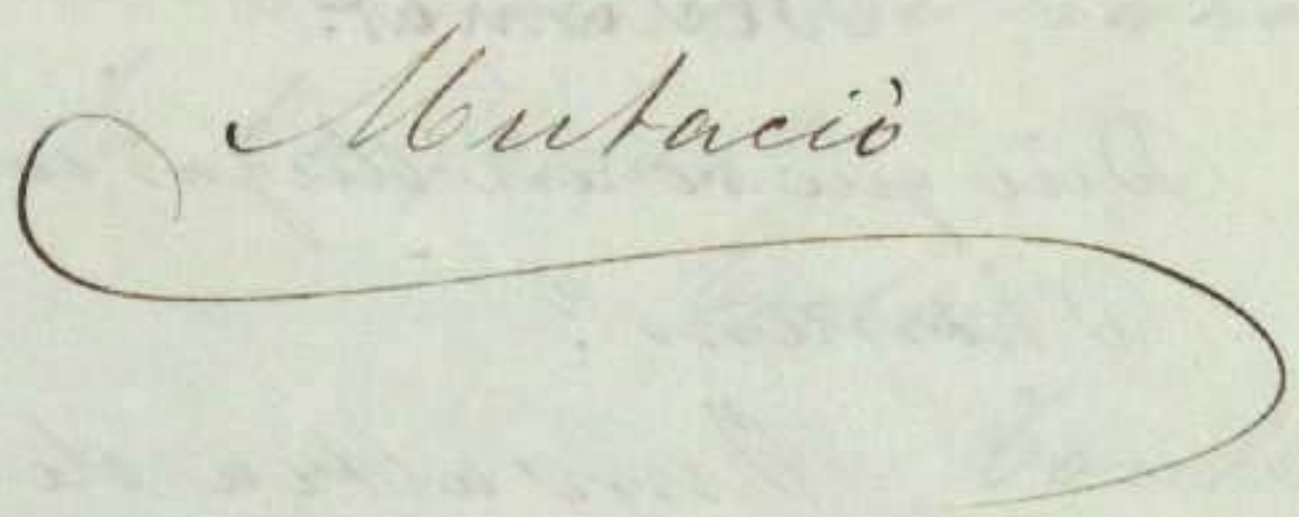 Mutaciò